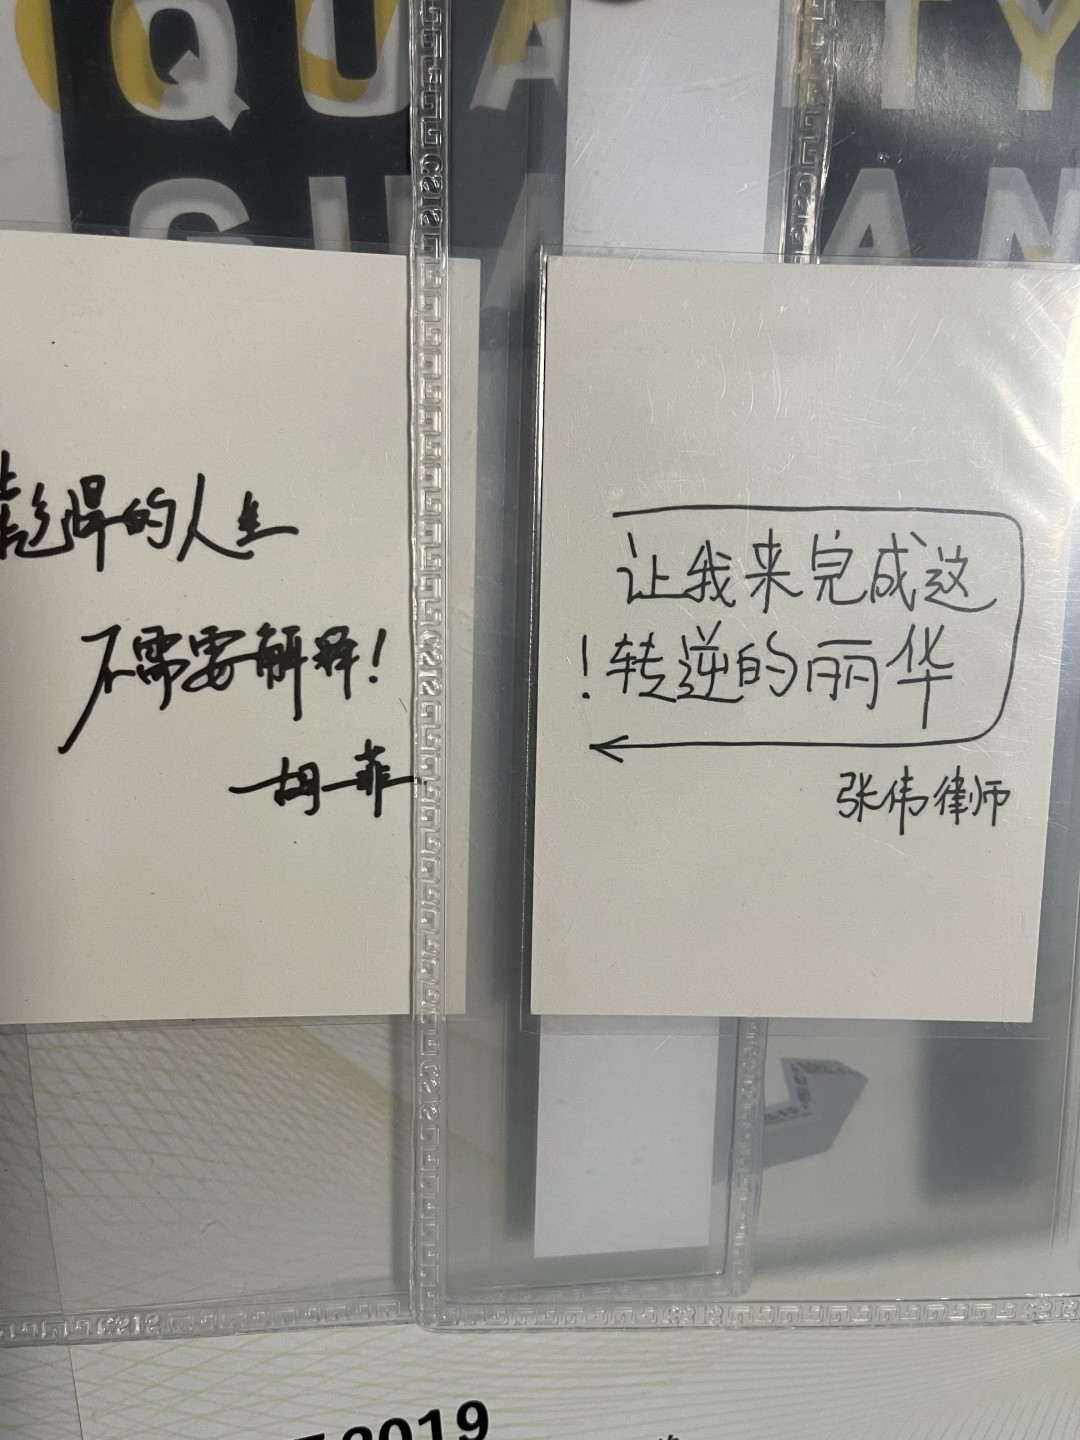 QUA
TY
GUA
AN
彪悍的人生
不需要解释!
胡一菲
让我来完成这
!转逆的丽华
张伟律师
2019